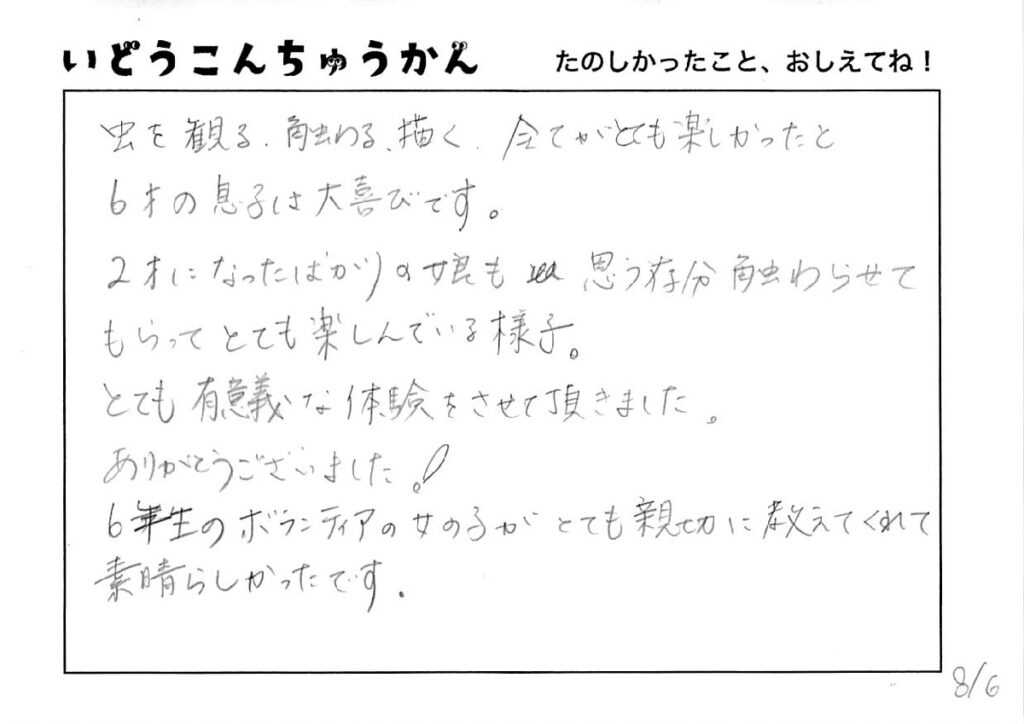 いどうこんちゅうかん
たのしかったこと、おしえてね！
虫を観る、触わる、描く、全てがとても楽しかったと
6才の息子は大喜びです。
2才になったばかりの娘も 思う存分触わらせて
もらってとても楽しんでいる様子。
とても有意義な体験をさせて頂きました。
ありがとうございました。!
6年生のボランティアの女の子がとても親切に教えてくれて
素晴らしかったです。
8/6